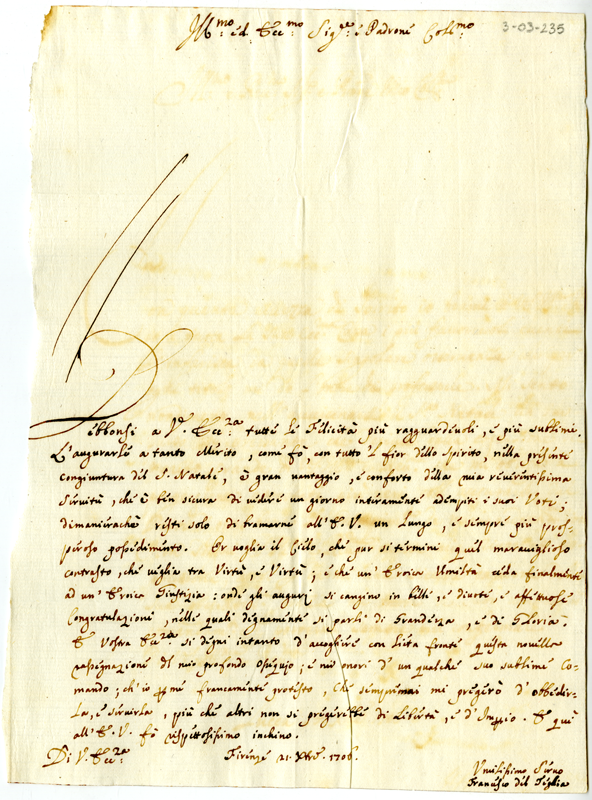 Ill:mo ed Ecc:mo Sig:re e Padrone Col:mo
3-03-235
Debbonsi a V. Ecc:za tutte le Felicità più ragguardevoli, e più sublimi.
L'augurarle a tanto Merito, come fò, con tutto 'l fior dello Spirito, nella presente
congiuntura del S. Natale, è gran vantaggio, e conforto della mia reverentissima
servitù, che è ben sicura di vedere un giorno interamente adempiti i suoi Voti;
dimanierachè resti solo di bramarne all'E. V. un lungo, e sempre più pros-
peroso possedimento. Or voglia il Cielo, che pur si termini quel maraviglioso
contrasto, che veglia tra Virtù, e Virtù; e che un' Eroica Umiltà ceda finalmente
ad un' Eroica Giustizia: onde gli augurj si cangino in belle, e divote, e affettuose
Congratulazioni, nelle quali degnamente si parli di Grandezza, e di Gloria.
E Vostra Ecc:za si degni intanto d'accogliere con lieta fronte questa novella
rassegnazione del mio profondo Ossequio; e m'onori d'un qualche suo sublime Co-
mando; ch'io per me francamente protesto, che sempremai mi pregerò d'obbedir-
la, e servirla, più che altri non si pregerebbe di Libertà, e d'Impero. E qui
all'E. V. fò rispettosissimo inchino.
Di V. Ecc:za Firenze 21 Xbre. 1706.
Umilissimo Servo
Francesco del Teglia